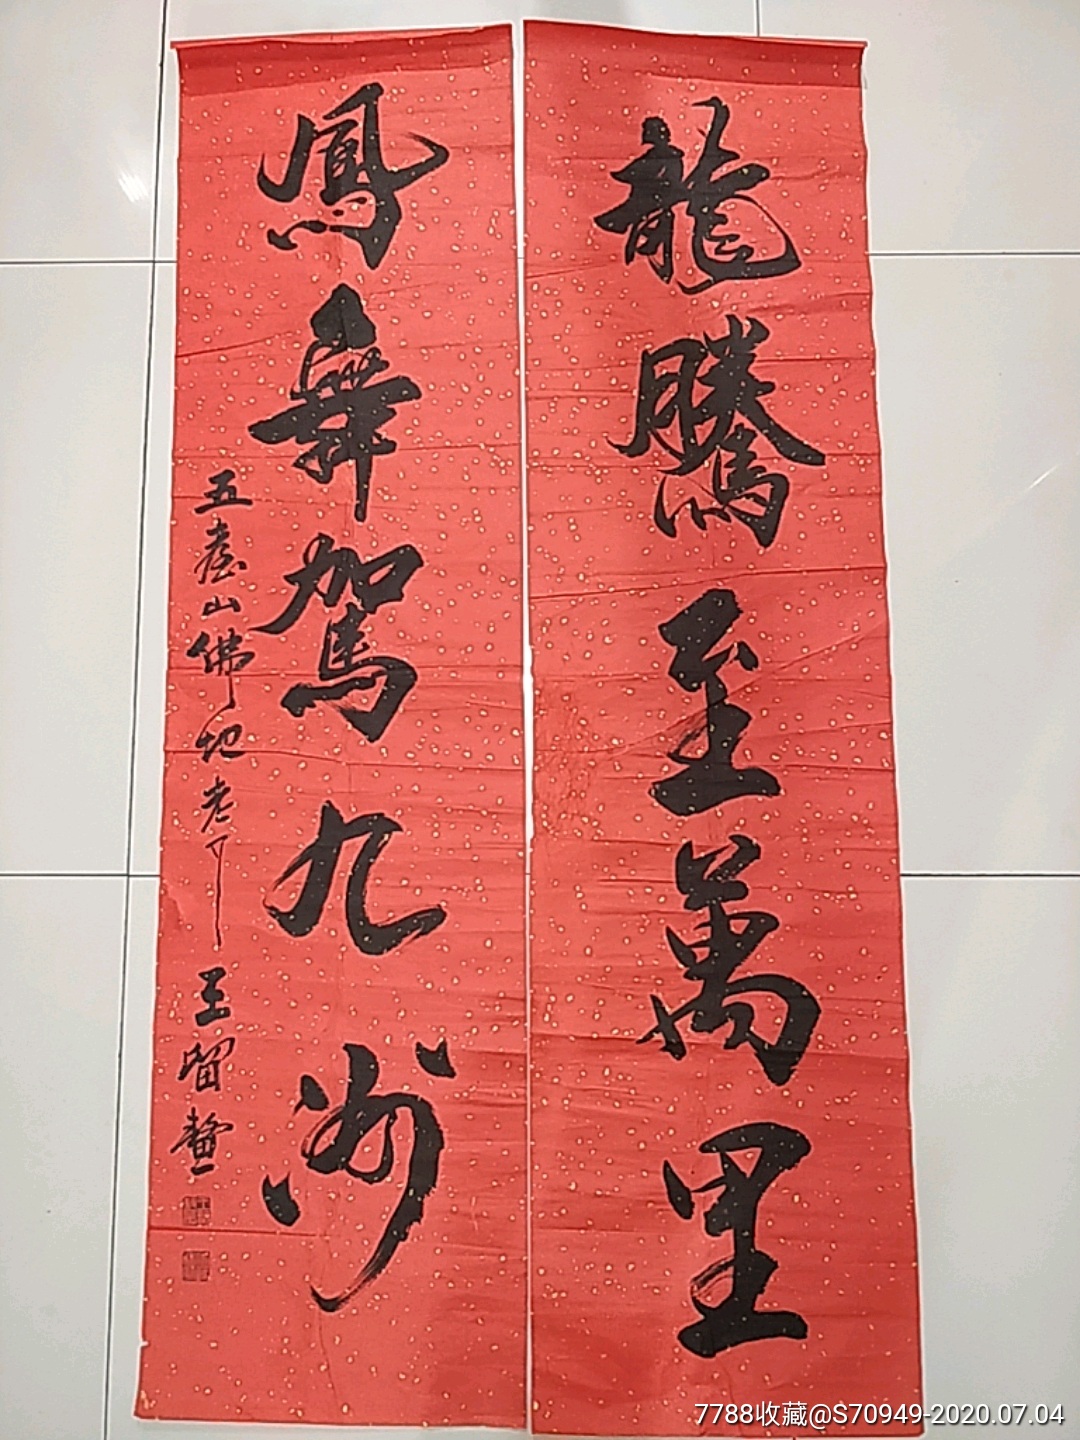 龍騰至萬里
鳳舞駕九州
五臺山佛地老丁王留鰲
7788收藏@S70949-2020.07.04